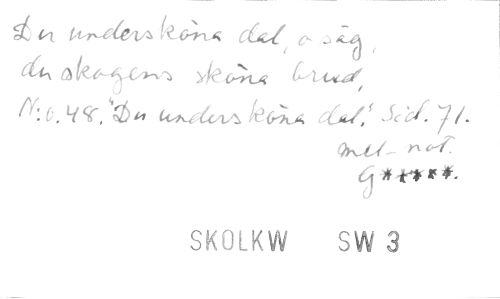 Du undersköna dal, o säg,
du skogens sköna brud,
N:o. 48. "Du undersköna dal." Sid. 71.
mel. not.
G*****.
SKOLKW SW 3